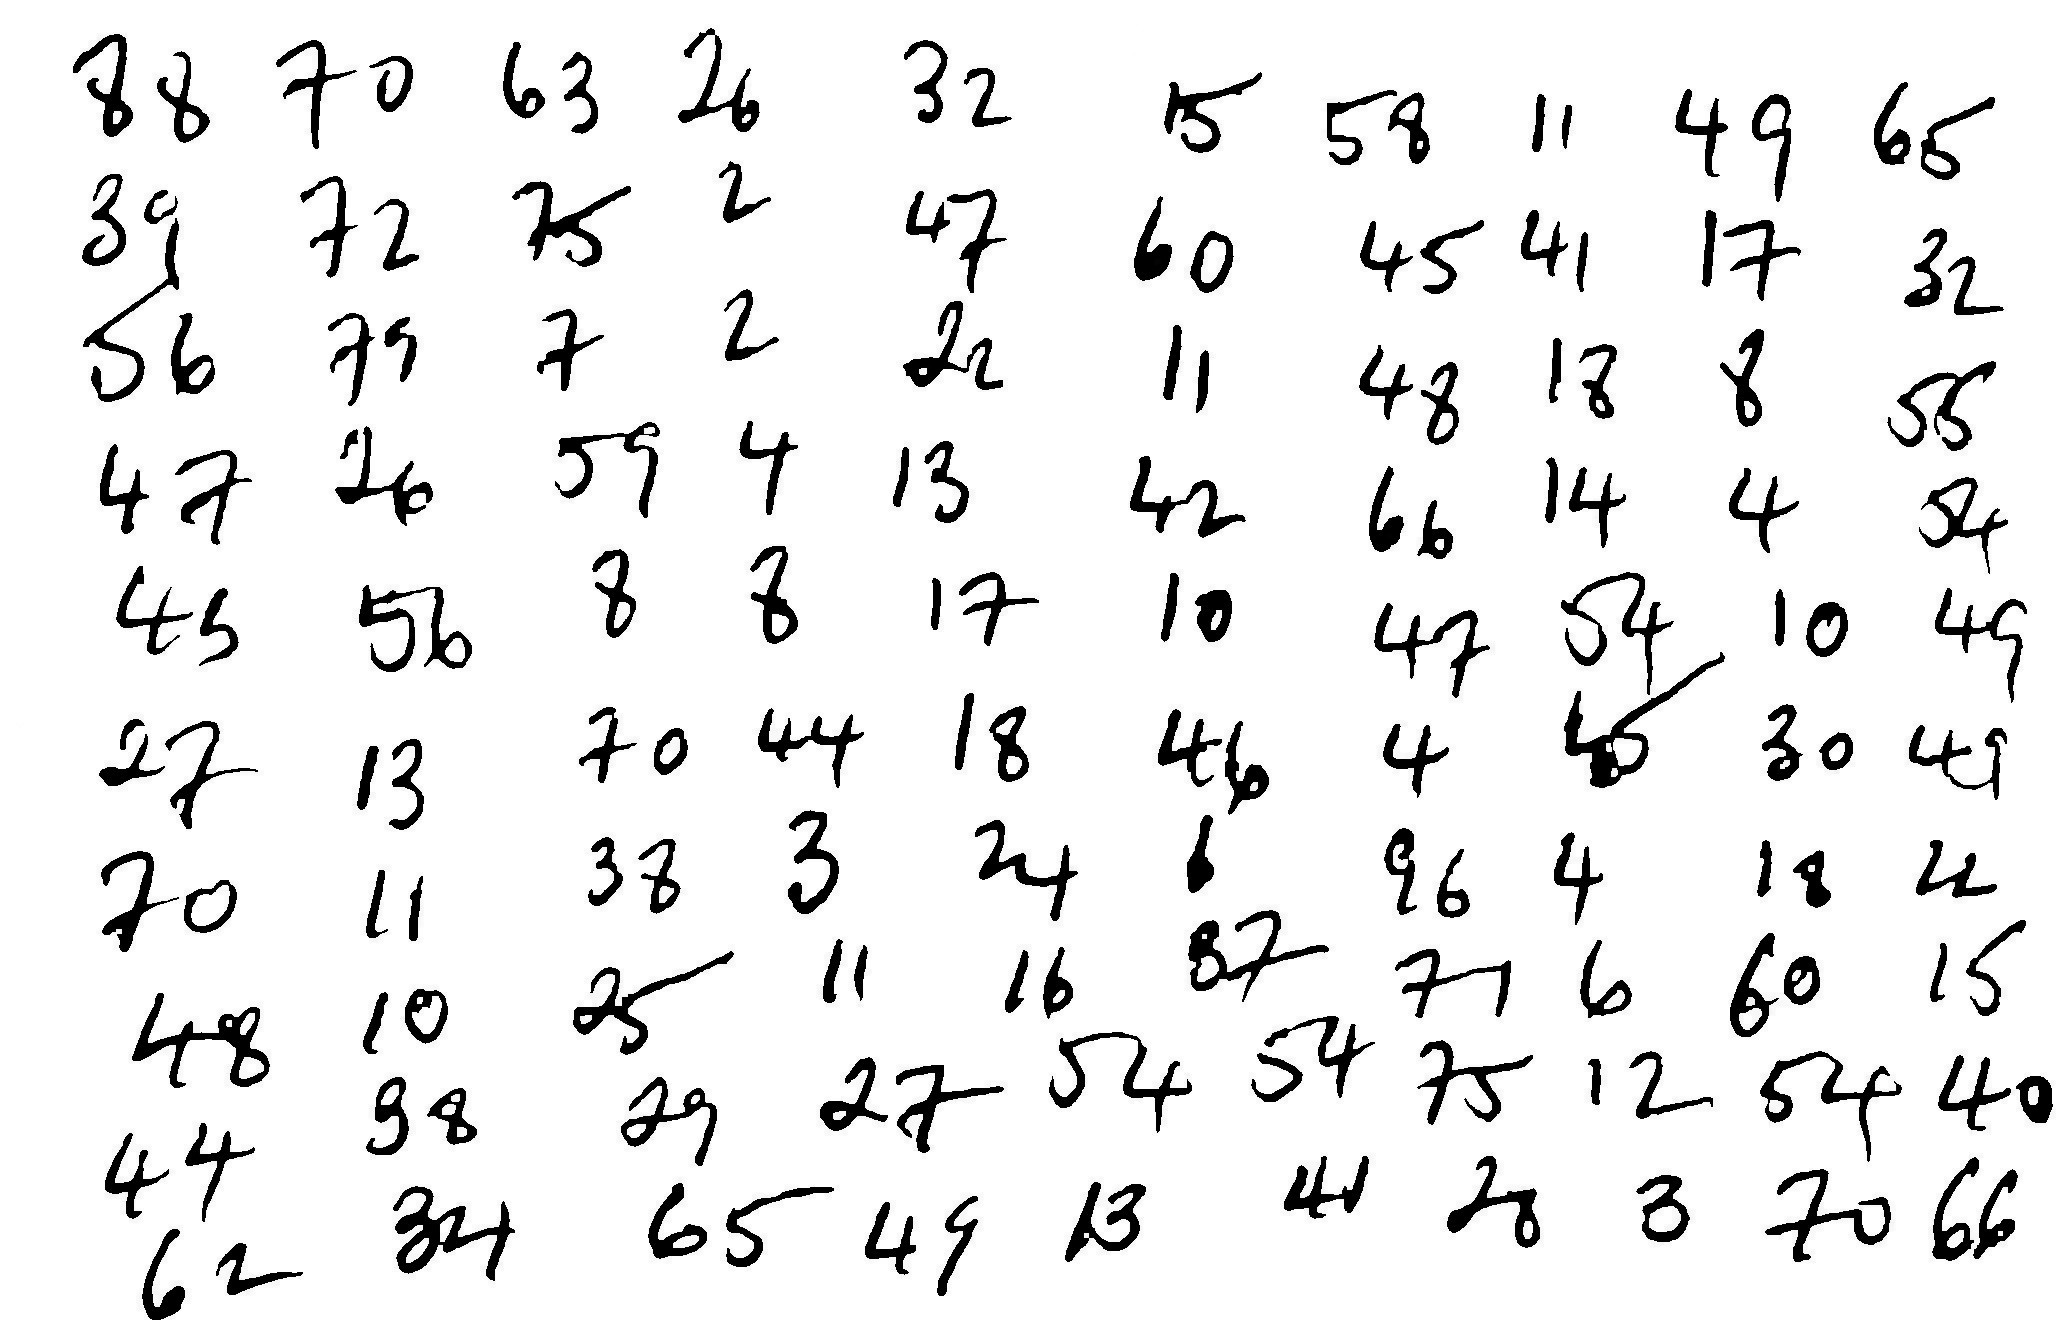 88 70 63 26 32 15 58 11 49 65
39 72 75 2 47 60 45 41 17 32
56 79 7 2 22 11 48 18 8 55
47 26 59 4 13 42 66 14 4 54
45 56 8 8 17 10 47 54 10 49
27 13 70 44 18 46 4 30 49
70 11 38 3 24 6 96 4 18 22
48 10 25 11 16 37 71 6 60 15
44 98 29 27 54 54 75 12 54 40
62 34 65 49 13 41 28 3 70 66